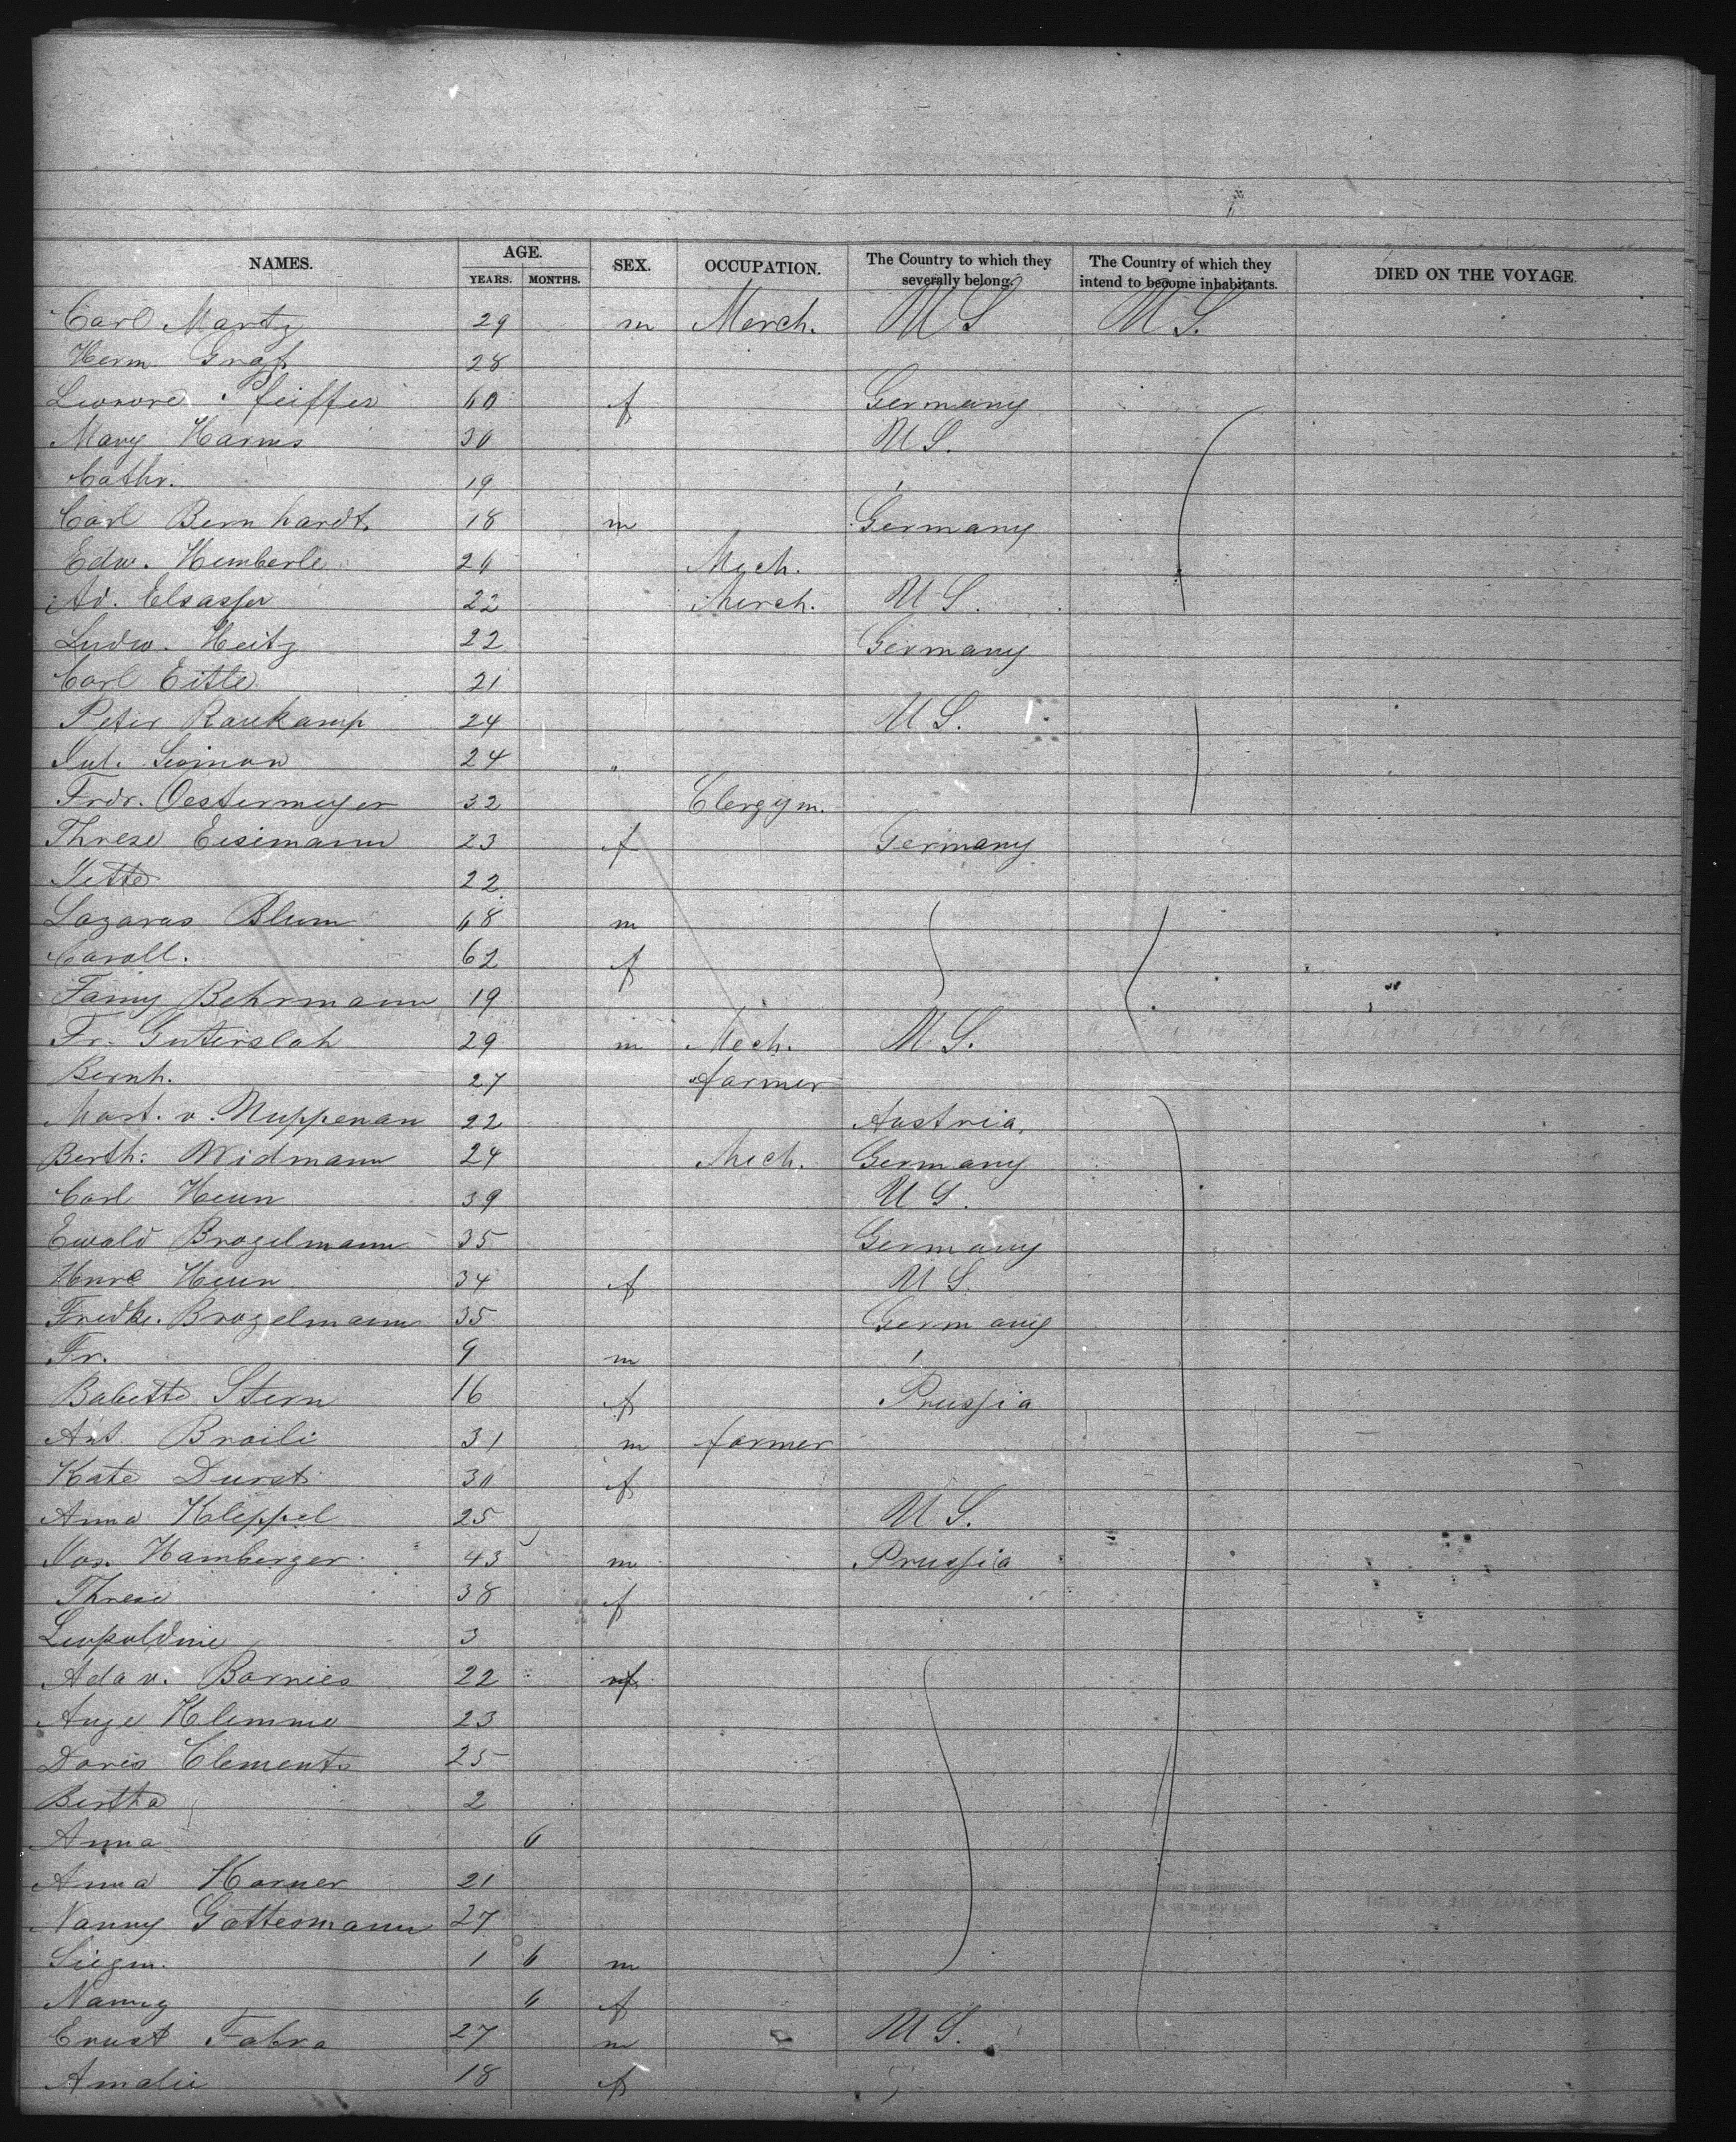 NAMES. AGE. YEARS. MONTHS. SEX. OCCUPATION. The Country to which they severally belong. The Country of which they intend to become inhabitants. DIED ON THE VOYAGE.
Carl Martz 29 m Merch. U S U S.
Herm. Graf 28
Leonore Pfeiffer 60 f Germany
Mary Harms 30 U S.
Cathr. 19
Carl Bernhardt. 18 m Germany
Edw. Hemberle 26 Mech.
Ad. Elsasser 22 Merch. U S.
Ludw. Heitz 22 Germany
Carl Eitle 21
Peter Raukamp 24 U S.
Jul. Simon 24
Fror. Oestermeyer 32 Clergym.
Threse Eisimann 23 f Germany
Jette 22
Lazarus Blum 68 m
Caroll. 62 f
Fanny Behrmann 19
Fr. Gutersloh 29 m Mech. U S.
Bernh. 27 farmer
Mart. v. Nuppenau 22 Austria.
Berth: Widmann 24 Mech. Germany
Carl Heun 39 U S.
Ewald Brogelmann 35 Germany
Henre Heun 34 f U S.
Fredke. Brogelmann 35 Germany
Fr. 9 m
Babette Stern 16 f Prussia
Ant. Braili 31 m farmer
Kate Durst 30 f
Anna Kleppel 25 U S.
Jos. Hamberger 43 m Prussia
Threse 38 f
Leopoldine 3
Ada v. Borries 22 f
Auge Klemme 23
Doris Clements 25
Bertha 2
Anna 6
Anna Horner 21
Nanny Gottesmann 27
Siegm. 1 6 m
Nanny 6 f
Ernst Fabra 27 m U S.
Amalie 18 f